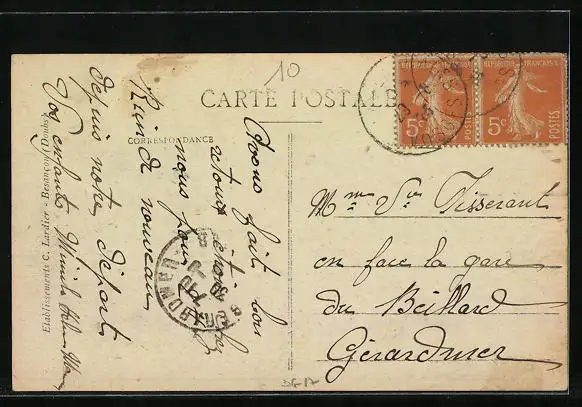 10
CARTE POSTALE
CORRESPONDANCE
Avons fait bon
retour étions chez
nous pour
Rien de nouveau
depuis notre départ
Vos enfants
Etablissements C. Lardier - Besançon (Doubs)
REPUBLIQUE FRANÇAISE
5c
POSTES
REPUBLIQUE FRANÇAISE
5c
POSTES
Mme Vve Tisserant
en face la gare
du Beillard
Gérardmer